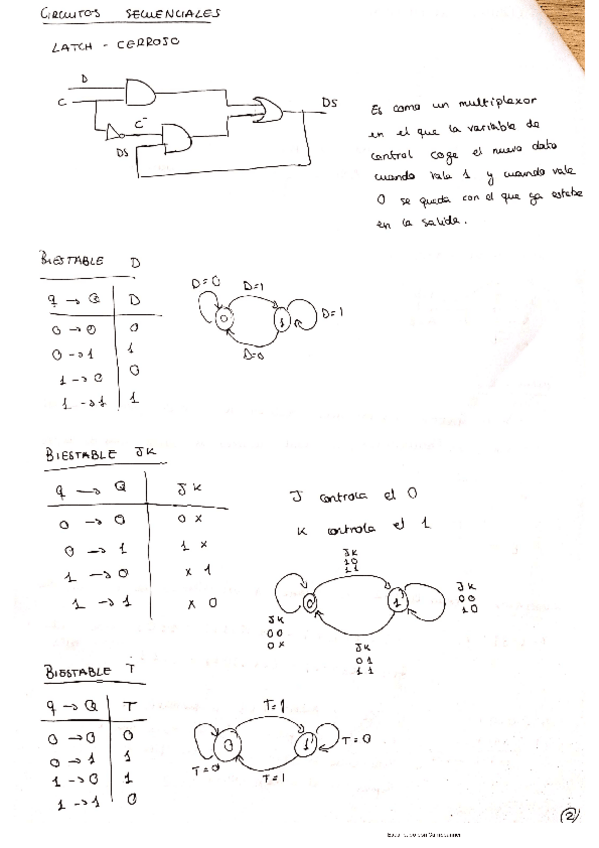 CIRCUITOS SECUENCIALES
LATCH - CERROJO
D
C
C̄
DS
DS
Es como un multiplexor
en el que la variable de
control coge el nuevo dato
cuando vale 1 y cuando vale
0 se queda con el que ya estaba
en la salida.
BIESTABLE D
q → Q D
0 → 0 0
0 → 1 1
1 → 0 0
1 → 1 1
D=0 D=1
0 1 D=1
D=0
BIESTABLE JK
q → Q JK
0 → 0 0 x
0 → 1 1 x
1 → 0 x 1
1 → 1 x 0
J controla el 0
K controla el 1
JK
10
11
0 1
JK
00
10
JK
00
0x
JK
01
11
BIESTABLE T
q → Q T
0 → 0 0
0 → 1 1
1 → 0 1
1 → 1 0
T=1
0 1 T=0
T=0
T=1
2